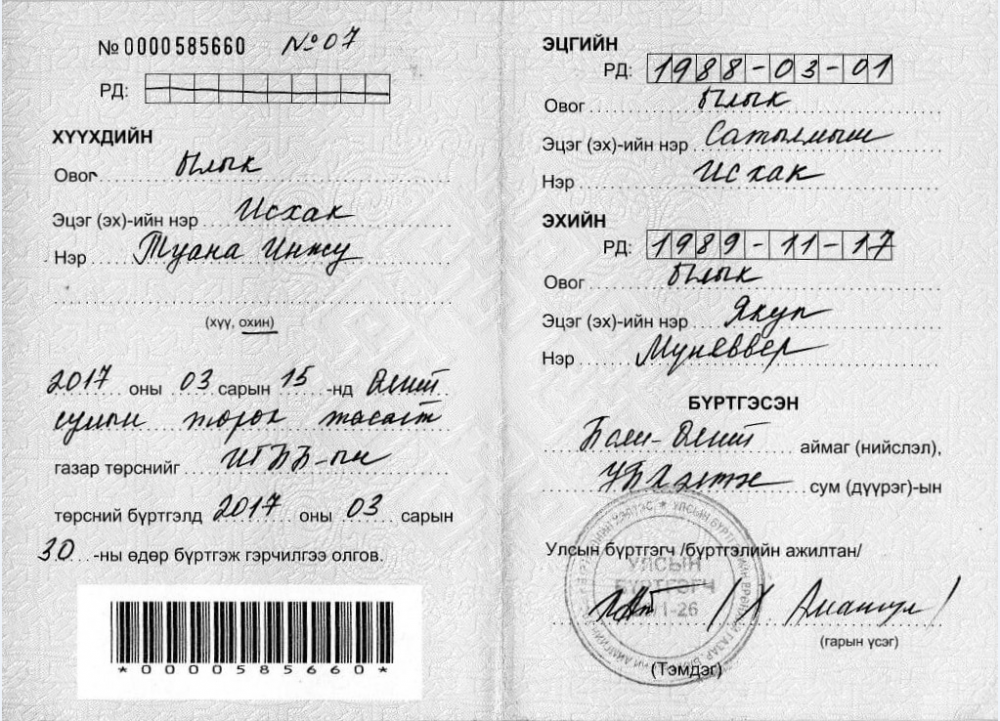 № 0000585660 №07
РД:
ХҮҮХДИЙН
Овог Ылык
Эцэг (эх)-ийн нэр Исхак
Нэр Туана Инжу
(хүү, охин)
2017 оны 03 сарын 15 -нд Өлгий
сумын төрөх
газар төрснийг
төрсний бүртгэлд 2017 оны 03 сарын
30 -ны өдөр бүртгэж гэрчилгээ олгов.
*0000585660*
ЭЦГИЙН
РД: 1988-03-01
Овог Ылык
Эцэг (эх)-ийн нэр Сатылмыш
Нэр Исхак
ЭХИЙН
РД: 1989-11-17
Овог Ылык
Эцэг (эх)-ийн нэр Якуп
Нэр Муневвер
БҮРТГЭСЭН
Баян-Өлгий аймаг (нийслэл),
УБХэлтэс сум (дүүрэг)-ын
Улсын бүртгэгч /бүртгэлийн ажилтан/
УЛСЫН
БҮРТГЭГЧ
11-26
(гарын үсэг)
(Тэмдэг)